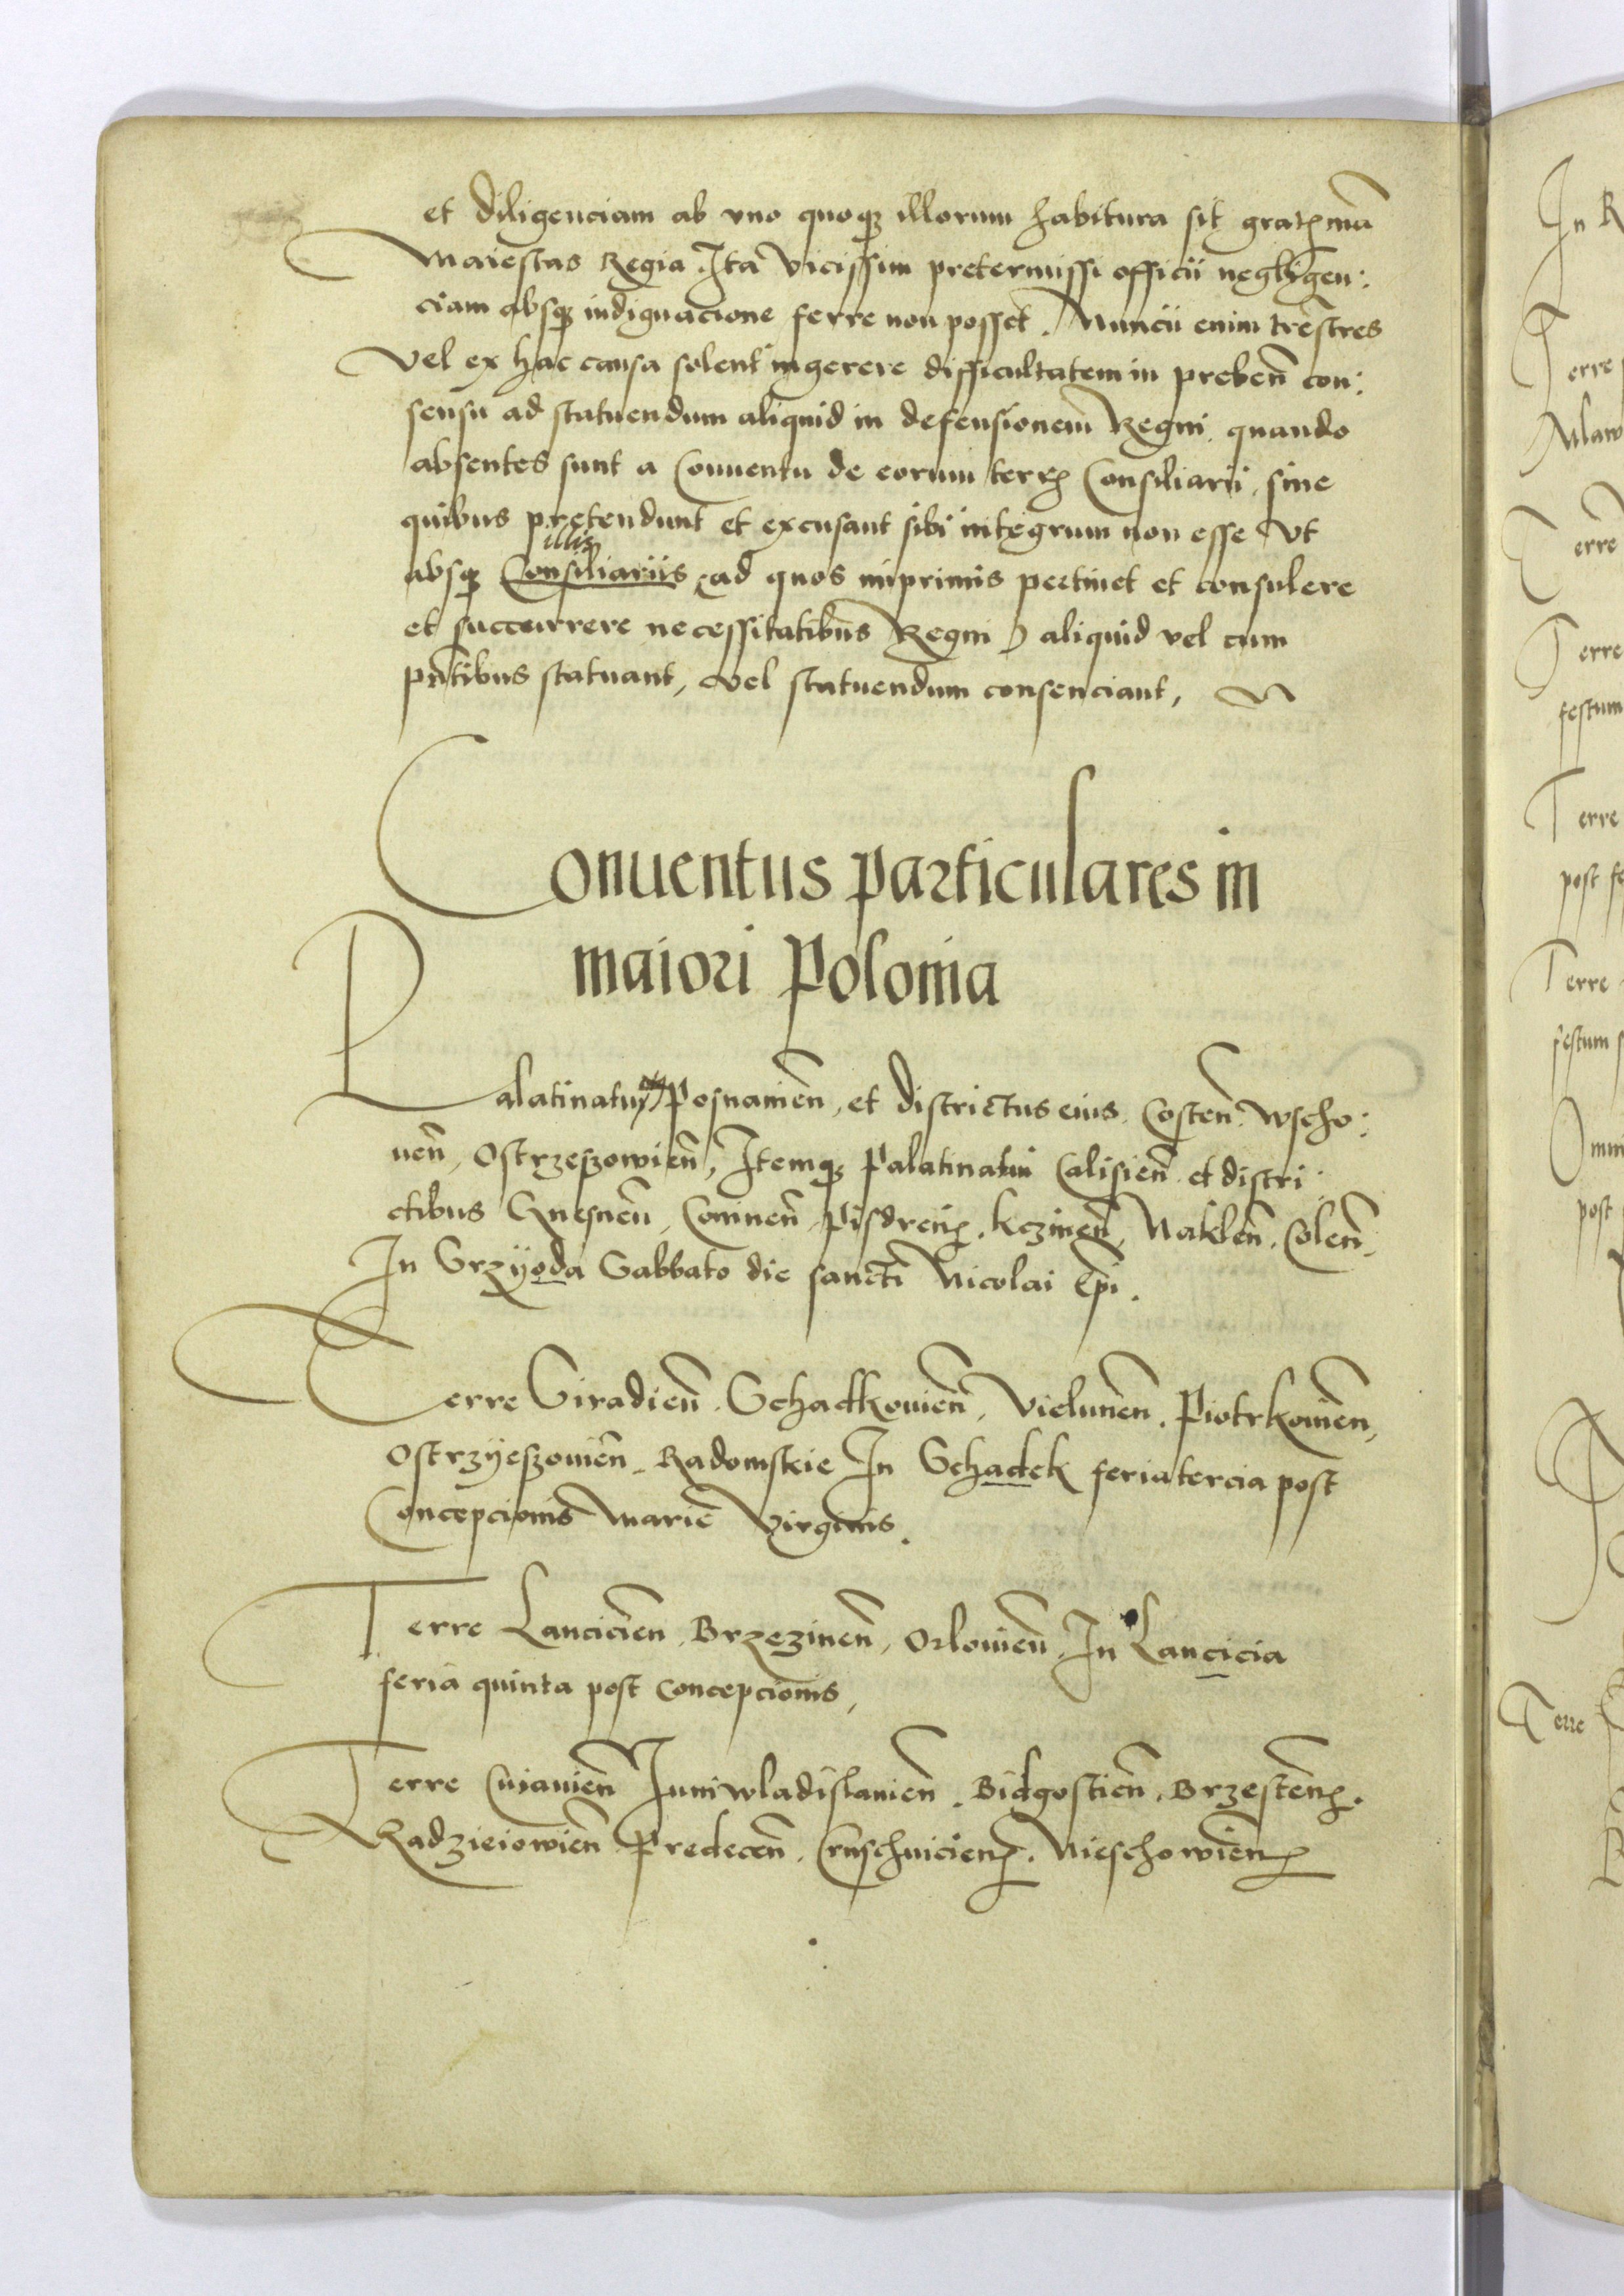 et diligenciam ab vno quoqꝫ illorum habitura sit gratꝫmā
Maiestas Regia Ita vicissim pretermissi officii negligen:
ciam absqꝫ indignacione ferre non posset. Nuncii enim trēstres
Vel ex hac causa solent ingerere difficultatem in prebeñ con:
sensu ad statuendum aliquid in defensionem Regni quando
absentes sunt a Conuentu de eorum terrꝫ Consiliarii, sine
quibus pretendunt et excusant sibi integrum non esse Vt
illis
absqꝫ Consiliariis (ad quos inprimis pertinet et consulere
et succurrere necessitatibus Regni) aliquid vel cum
pñtibus statuant, vel statuendum consenciant,
Conuentus particulares in
maiori Polonia
Palatinatus Posnanień, et districtus eius Costeń. Wscho:
ueń, Ostrzeszowień, Itemqꝫ Palatinatui Calisień et distri:
ctibus Gnesneń, Conineń, Pisdreńꝫ, Kczineń, Nakleń, Coleń,
In Srzyoda Sabbato die sancti Nicolai Epi.
Terre Siradień, Schadkouień, Vieluneń, Piotrkouień,
Ostrzyeszouień, Radomskie In Schadek feria tercia post
Concepcionis Marie Virginis.
Terre Lancicień, Brzezineń, Orlouień, In Lancicia
feria quinta post Concepcionis,
Terre Cuiauień Iuniwladislauień, Bidgostień, Brzesteńꝫ.
Radzieiowień Predeceń, Cruschuicieńꝫ. Nieschowieńꝫ
In R
Terre
Mlaw
Terre
Terre
festum
Terre
post fe
Terre
festum
Omni
post
Terre